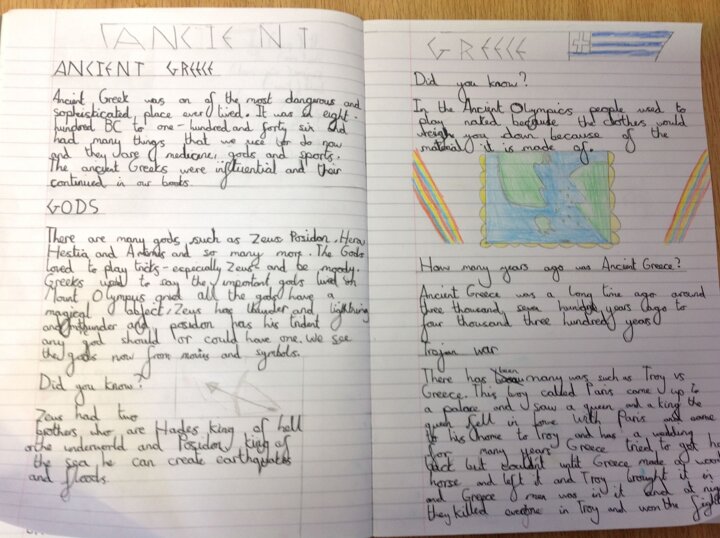 ANCIENT
ANCIENT GREECE
Ancient Greek was on of the most dangerous and
sophisticated place ever lived. It was at eight-
hundred BC to one-hundred and forty six and
had many things that we use to do now
and they are medicine, gods and sports.
The ancient Greeks were influential and their
continued in our books.
GODS
There are many gods, such as Zeus Posidon, Hera
Hestia and and so many more. The Gods
loved to play tricks - especially Zeus - and be moody.
Greeks used to say the important gods lived on
Mount Olympus all the gods have a
magical object. Zeus has thunder and lightning
and posidon has his trident
any god should or could have one. We see
the gods now from movies and symbols.
Did you know?
Zeus had two
brothers who are Hades king of hell
or the underworld and Posidon king of
the sea he can create earthquakes
and floods.
GREECE
Did you know?
In the Ancient Olympics people used to
play naked because the clothers would
weigh you down because of the
material it is made of.
How many years ago was Ancient Greece?
Ancient Greece was a long time ago around
three thousand, seven hundred years ago to
four thousand three hundred years
Trojan war
There has been many wars such as Troy vs
Greece. This boy called Paris came up to
a palace and saw a queen and a king the
queen fell in love with Paris and came
to his home to Troy and has a wedding
for many years Greece tried to get her
back but couldn't until Greece made a
horse and left it and Troy brought it in
and Greece men was in it and at
they killed everyone in Troy and won the